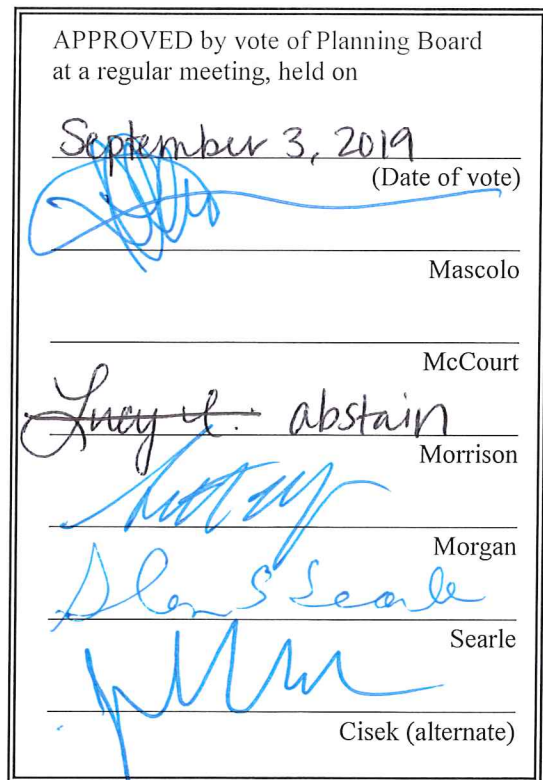 APPROVED by vote of Planning Board
at a regular meeting, held on
September 3, 2019
(Date of vote)
Mascolo
McCourt
abstain
Morrison
Morgan
Searle
Searle
Cisek (alternate)